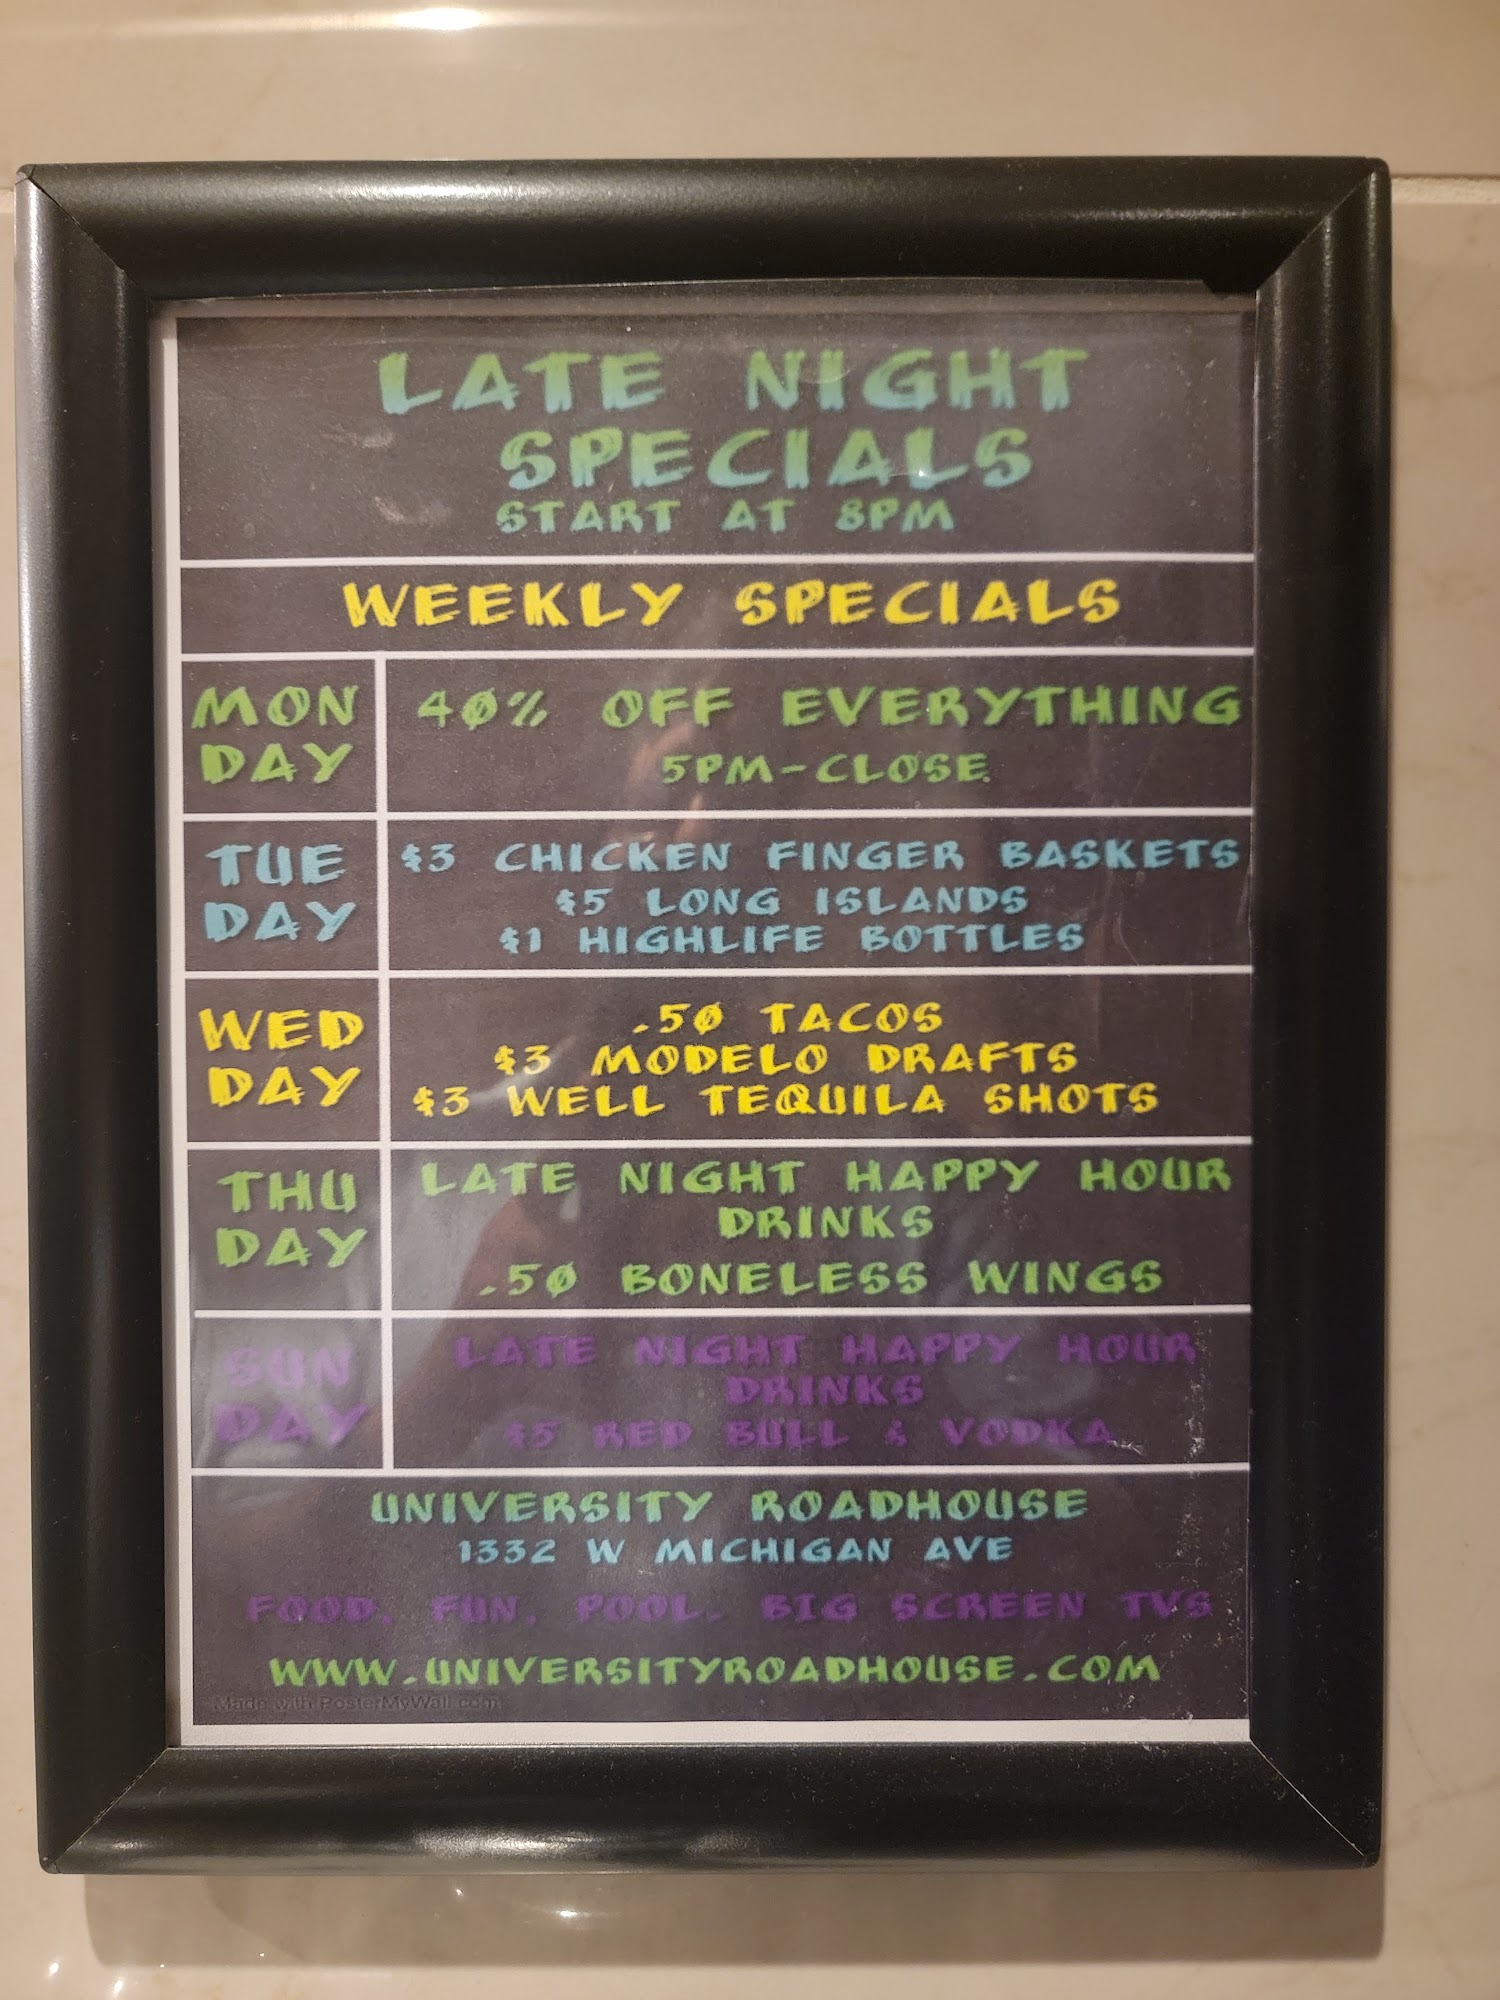 LATE NIGHT
SPECIALS
START AT 8PM
WEEKLY SPECIALS
MON
DAY
40% OFF EVERYTHING
5PM-CLOSE
TUE
DAY
$3 CHICKEN FINGER BASKETS
$5 LONG ISLANDS
$1 HIGHLIFE BOTTLES
WED
DAY
.50 TACOS
$3 MODELO DRAFTS
$3 WELL TEQUILA SHOTS
THU
DAY
LATE NIGHT HAPPY HOUR
DRINKS
.50 BONELESS WINGS
SUN
DAY
LATE NIGHT HAPPY HOUR
DRINKS
$5 RED BULL & VODKA
UNIVERSITY ROADHOUSE
1332 W MICHIGAN AVE
FOOD, FUN, POOL, BIG SCREEN TVS
WWW.UNIVERSITYROADHOUSE.COM
Made with PosterMyWall.com